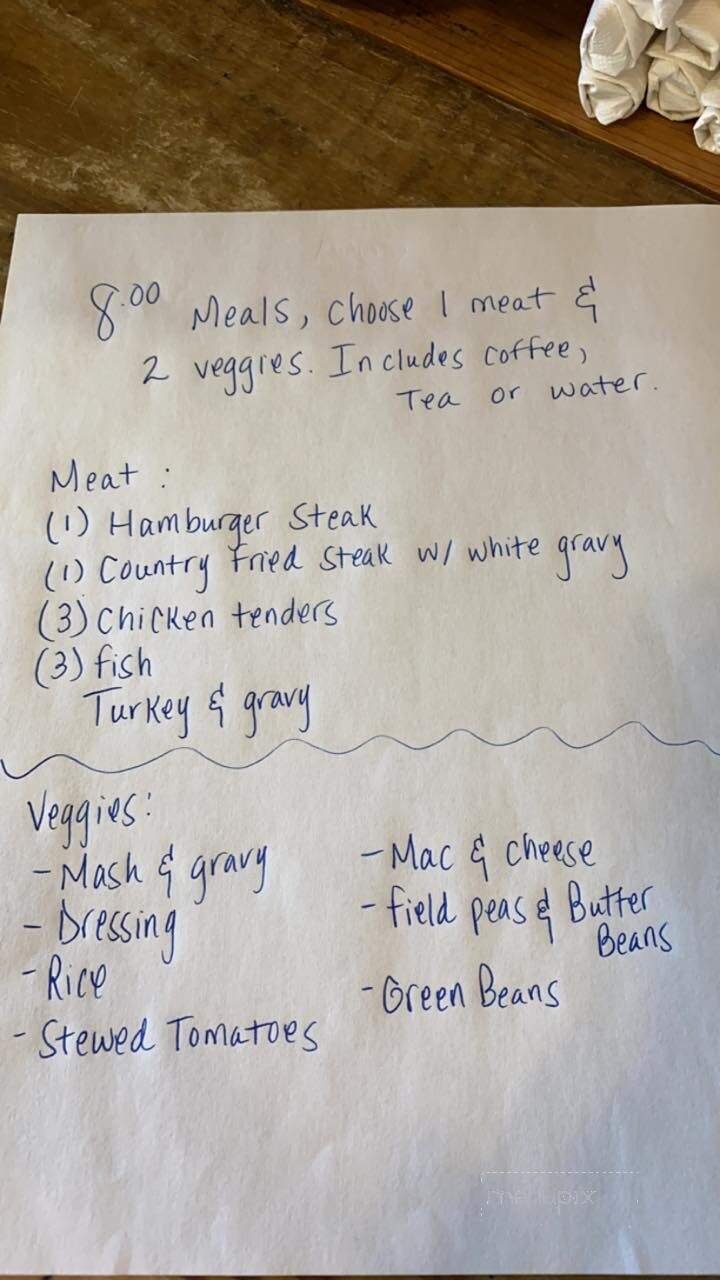 8.00 Meals, choose 1 meat &
2 veggies. Includes coffee,
Tea or water.
Meat:
(1) Hamburger Steak
(1) Country Fried Steak w/ white gravy
(3) Chicken tenders
(3) fish
Turkey & gravy
Veggies:
- Mash & gravy
- Dressing
- Rice
- Stewed Tomatoes
- Mac & cheese
- field peas & Butter
Beans
- Green Beans
menupix